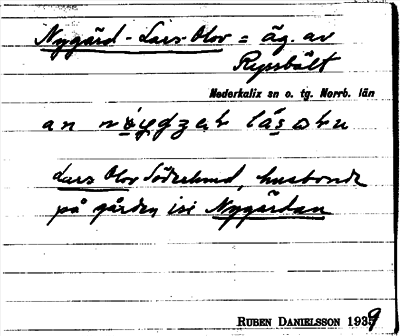 Nygård-Lars-Olov = äg. av
Ryssbält
Nederkalix sn o. tg. Norrb. län
an
Lars Olov Söderlund, husbonde
på gården isi Nygårdan
RUBEN DANIELSSON 1939